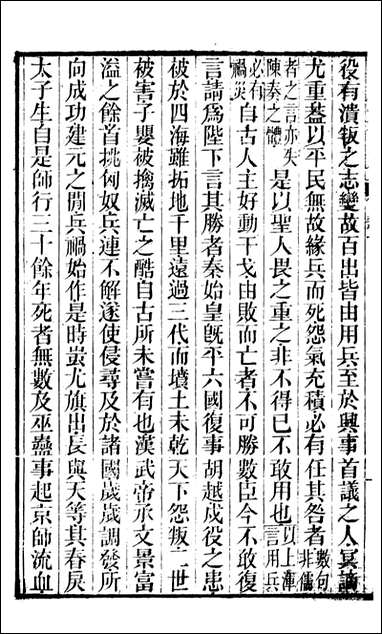 役有潰叛之志變故百出皆由用兵至於興事首議之人冥謫
尤重葢以平民無故緣兵而死怨氣充積必有任其咎者數句非儒
者之言亦失陳奏之體是以聖人畏之重之非不得已不敢用也以上渾言用兵
必有禍災自古人主好動干戈由敗而亡者不可勝數臣今不敢復
言請爲陛下言其勝者秦始皇旣平六國復事胡越戍役之患
被於四海雖拓地千里遠過三代而墳土未乾天下怨叛二世
被害子嬰被擒滅亡之酷自古所未嘗有也漢武帝承文景富
溢之餘首挑匈奴兵連不解遂使侵尋及於諸國歲歲調發所
向成功建元之閒兵禍始作是時蚩尤旗出長與天等其春戾
太子生自是師行三十餘年死者無數及巫蠱事起京師流血